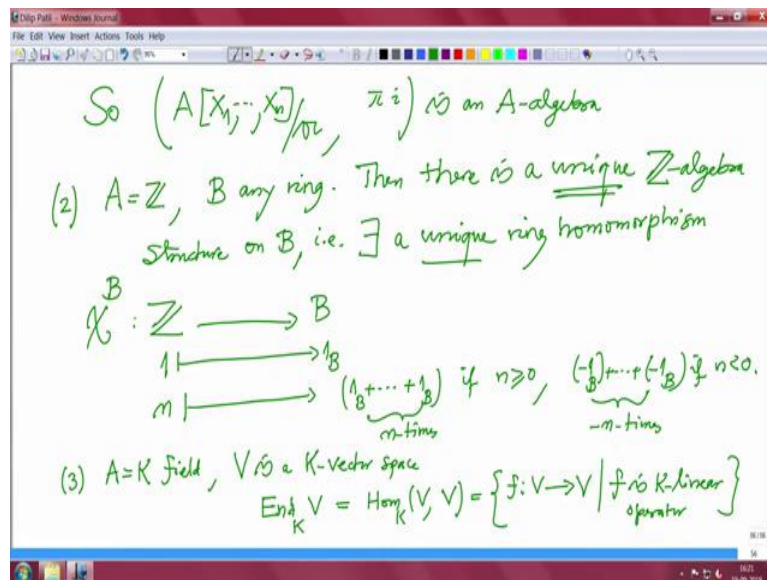 Dilip Patil - Windows Journal
File Edit View Insert Actions Tools Help
So (A[X₁,...,Xₙ]/𝔞, π i) is an A-algebra
(2) A=ℤ, B any ring. Then there is a unique ℤ-algebra
structure on B, i.e. ∃ a unique ring homomorphism
χ^B : ℤ ⟶ B
1 ⟼ 1_B
n ⟼ (1_B+···+1_B) if n≥0, (-1_B)+···+(-1_B) if n<0.
n-times -n-times
(3) A=K field, V is a K-vector space
End_K V = Hom_K(V, V) = {f: V⟶V | f is K-linear
operator}
56
16:21